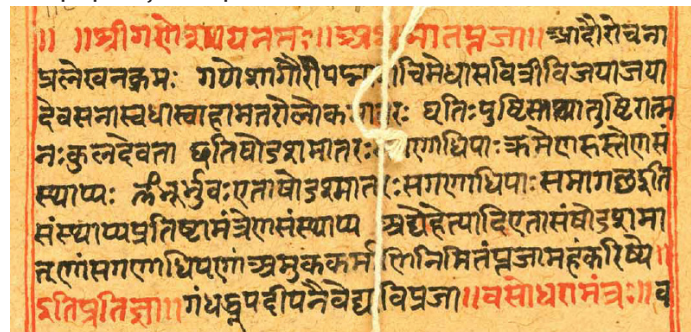 ॥ ॥श्रीगणेशाय नमः॥ अथ मातृपूजा॥ आदौ रोचना
प्रलेखनक्रमः गणेशागौरीपद्मा चिमेधासवित्रीविजयाजया
देवसेनास्वधास्वाहामातरोलोकमातरः धृतिःपुष्टिस्तथातुष्टिरात्म
नःकुलदेवता इतिषोडशमातरःसगणाधिपाः क्रमेण सं
स्थाप्यः ॐभूर्भुवःएताषोडशमातरःसगणाधिपाःसमागछइति
संस्थाप्यप्रतिष्ठामंत्रेणसंस्थाप्य अद्येहेत्यादिएतासंषोडशमा
तृणांसगणाधिपणां अमुककर्म निमितंपूजामहंकरिष्ये॥
इतिप्रतिज्ञा॥ गंधधूपदीपनैवेद्य विपूजा॥ वसोधरामंत्रः॥ व